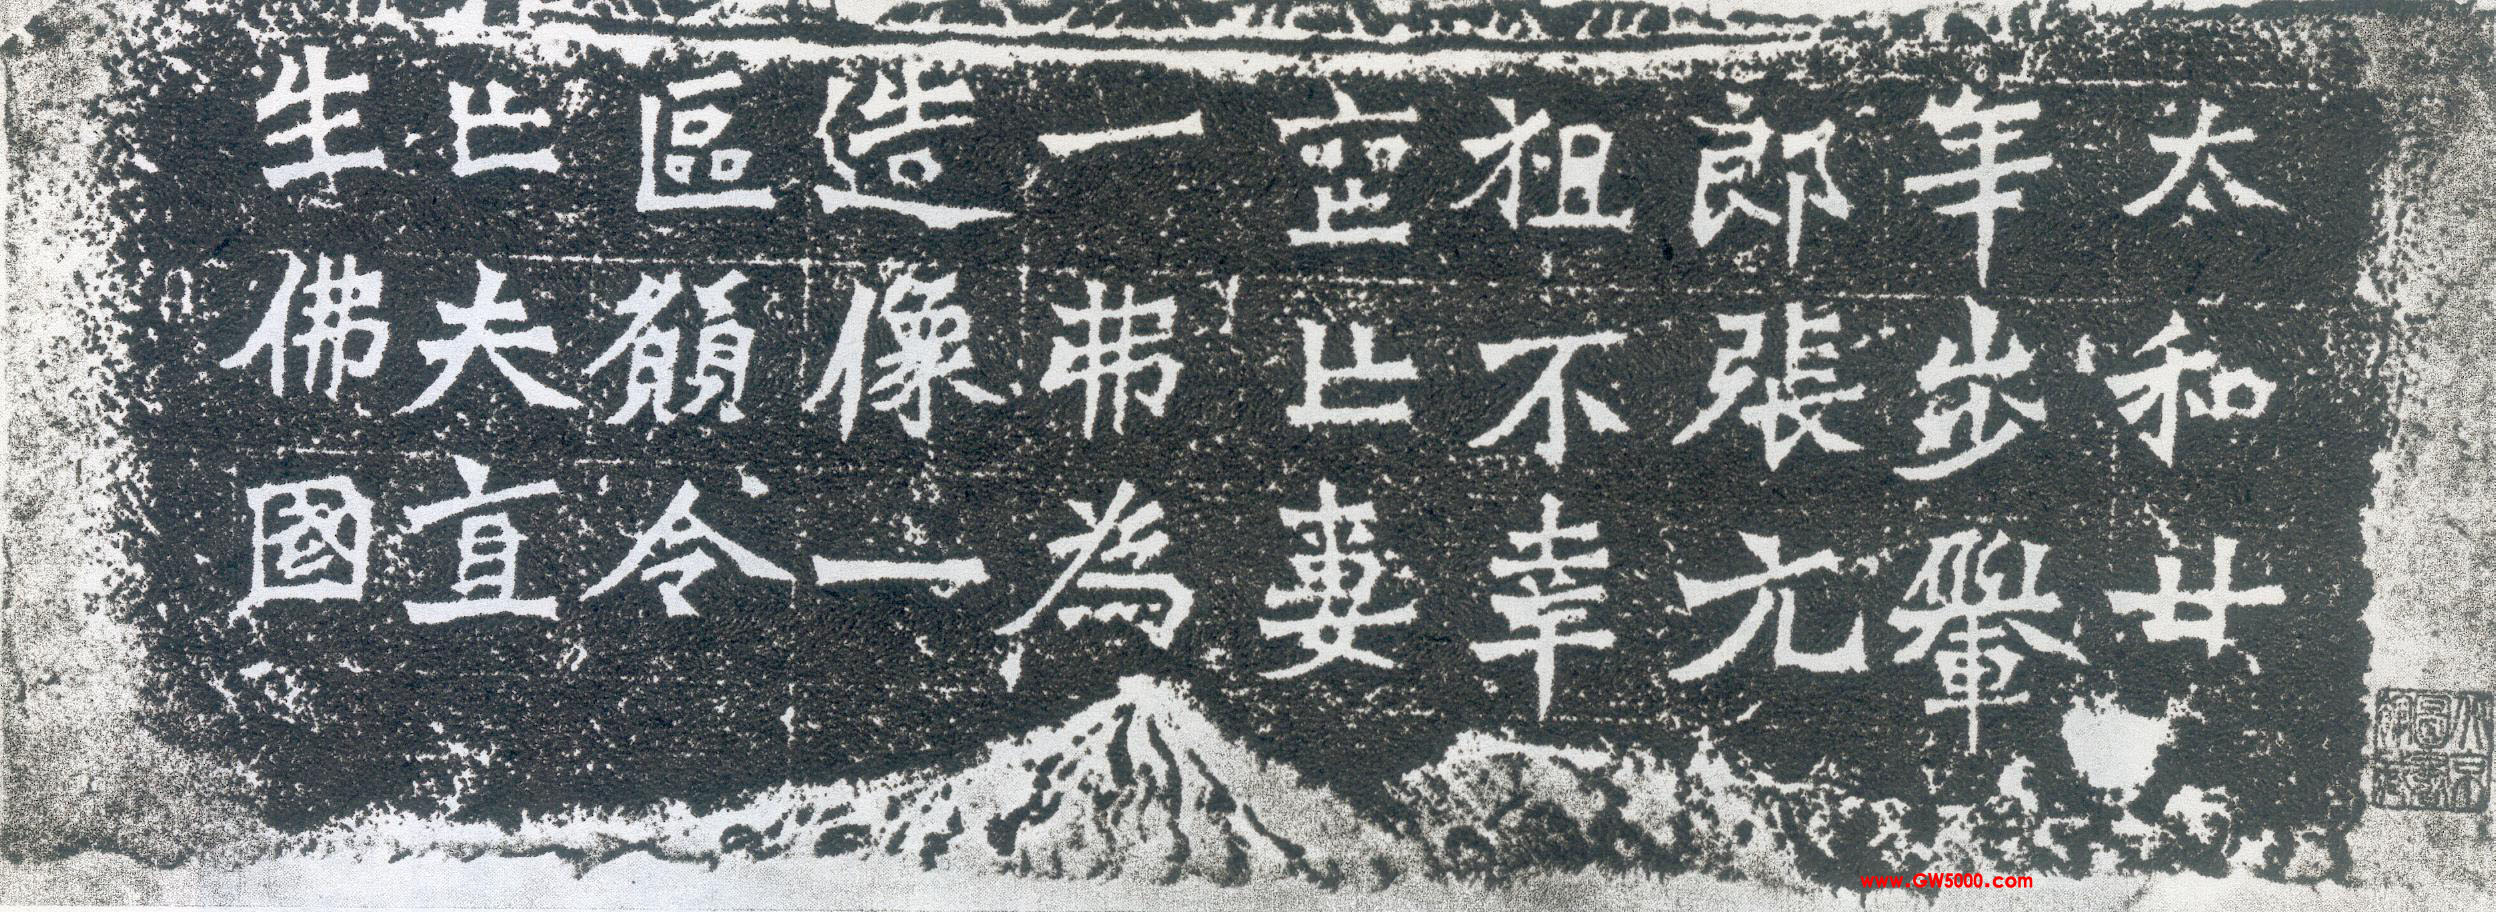 太和廿
年步轝
郎張元
祖不幸
喪亡妻
一弗為
造像一
區願令
亡夫直
生佛國
www.GW5000.com